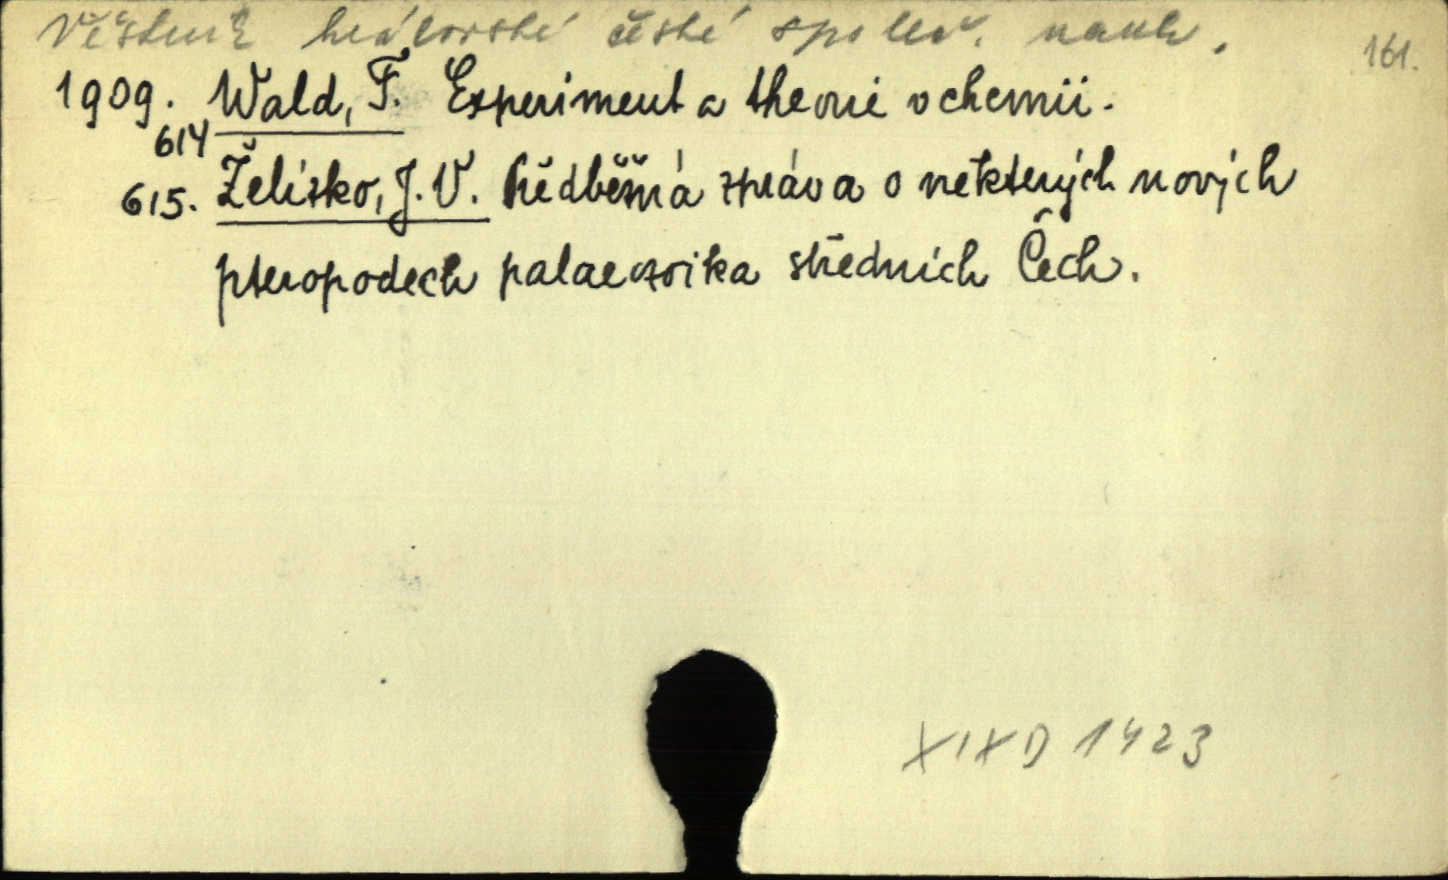 Věstník královské české společ. nauk.
161.
1909. Wald, F. Experiment a theorie v chemii.
614
615. Želízko, J. V. Předběžná zpráva o některých nových
pteropodech palaeozoika středních Čech.
XIXD 1423